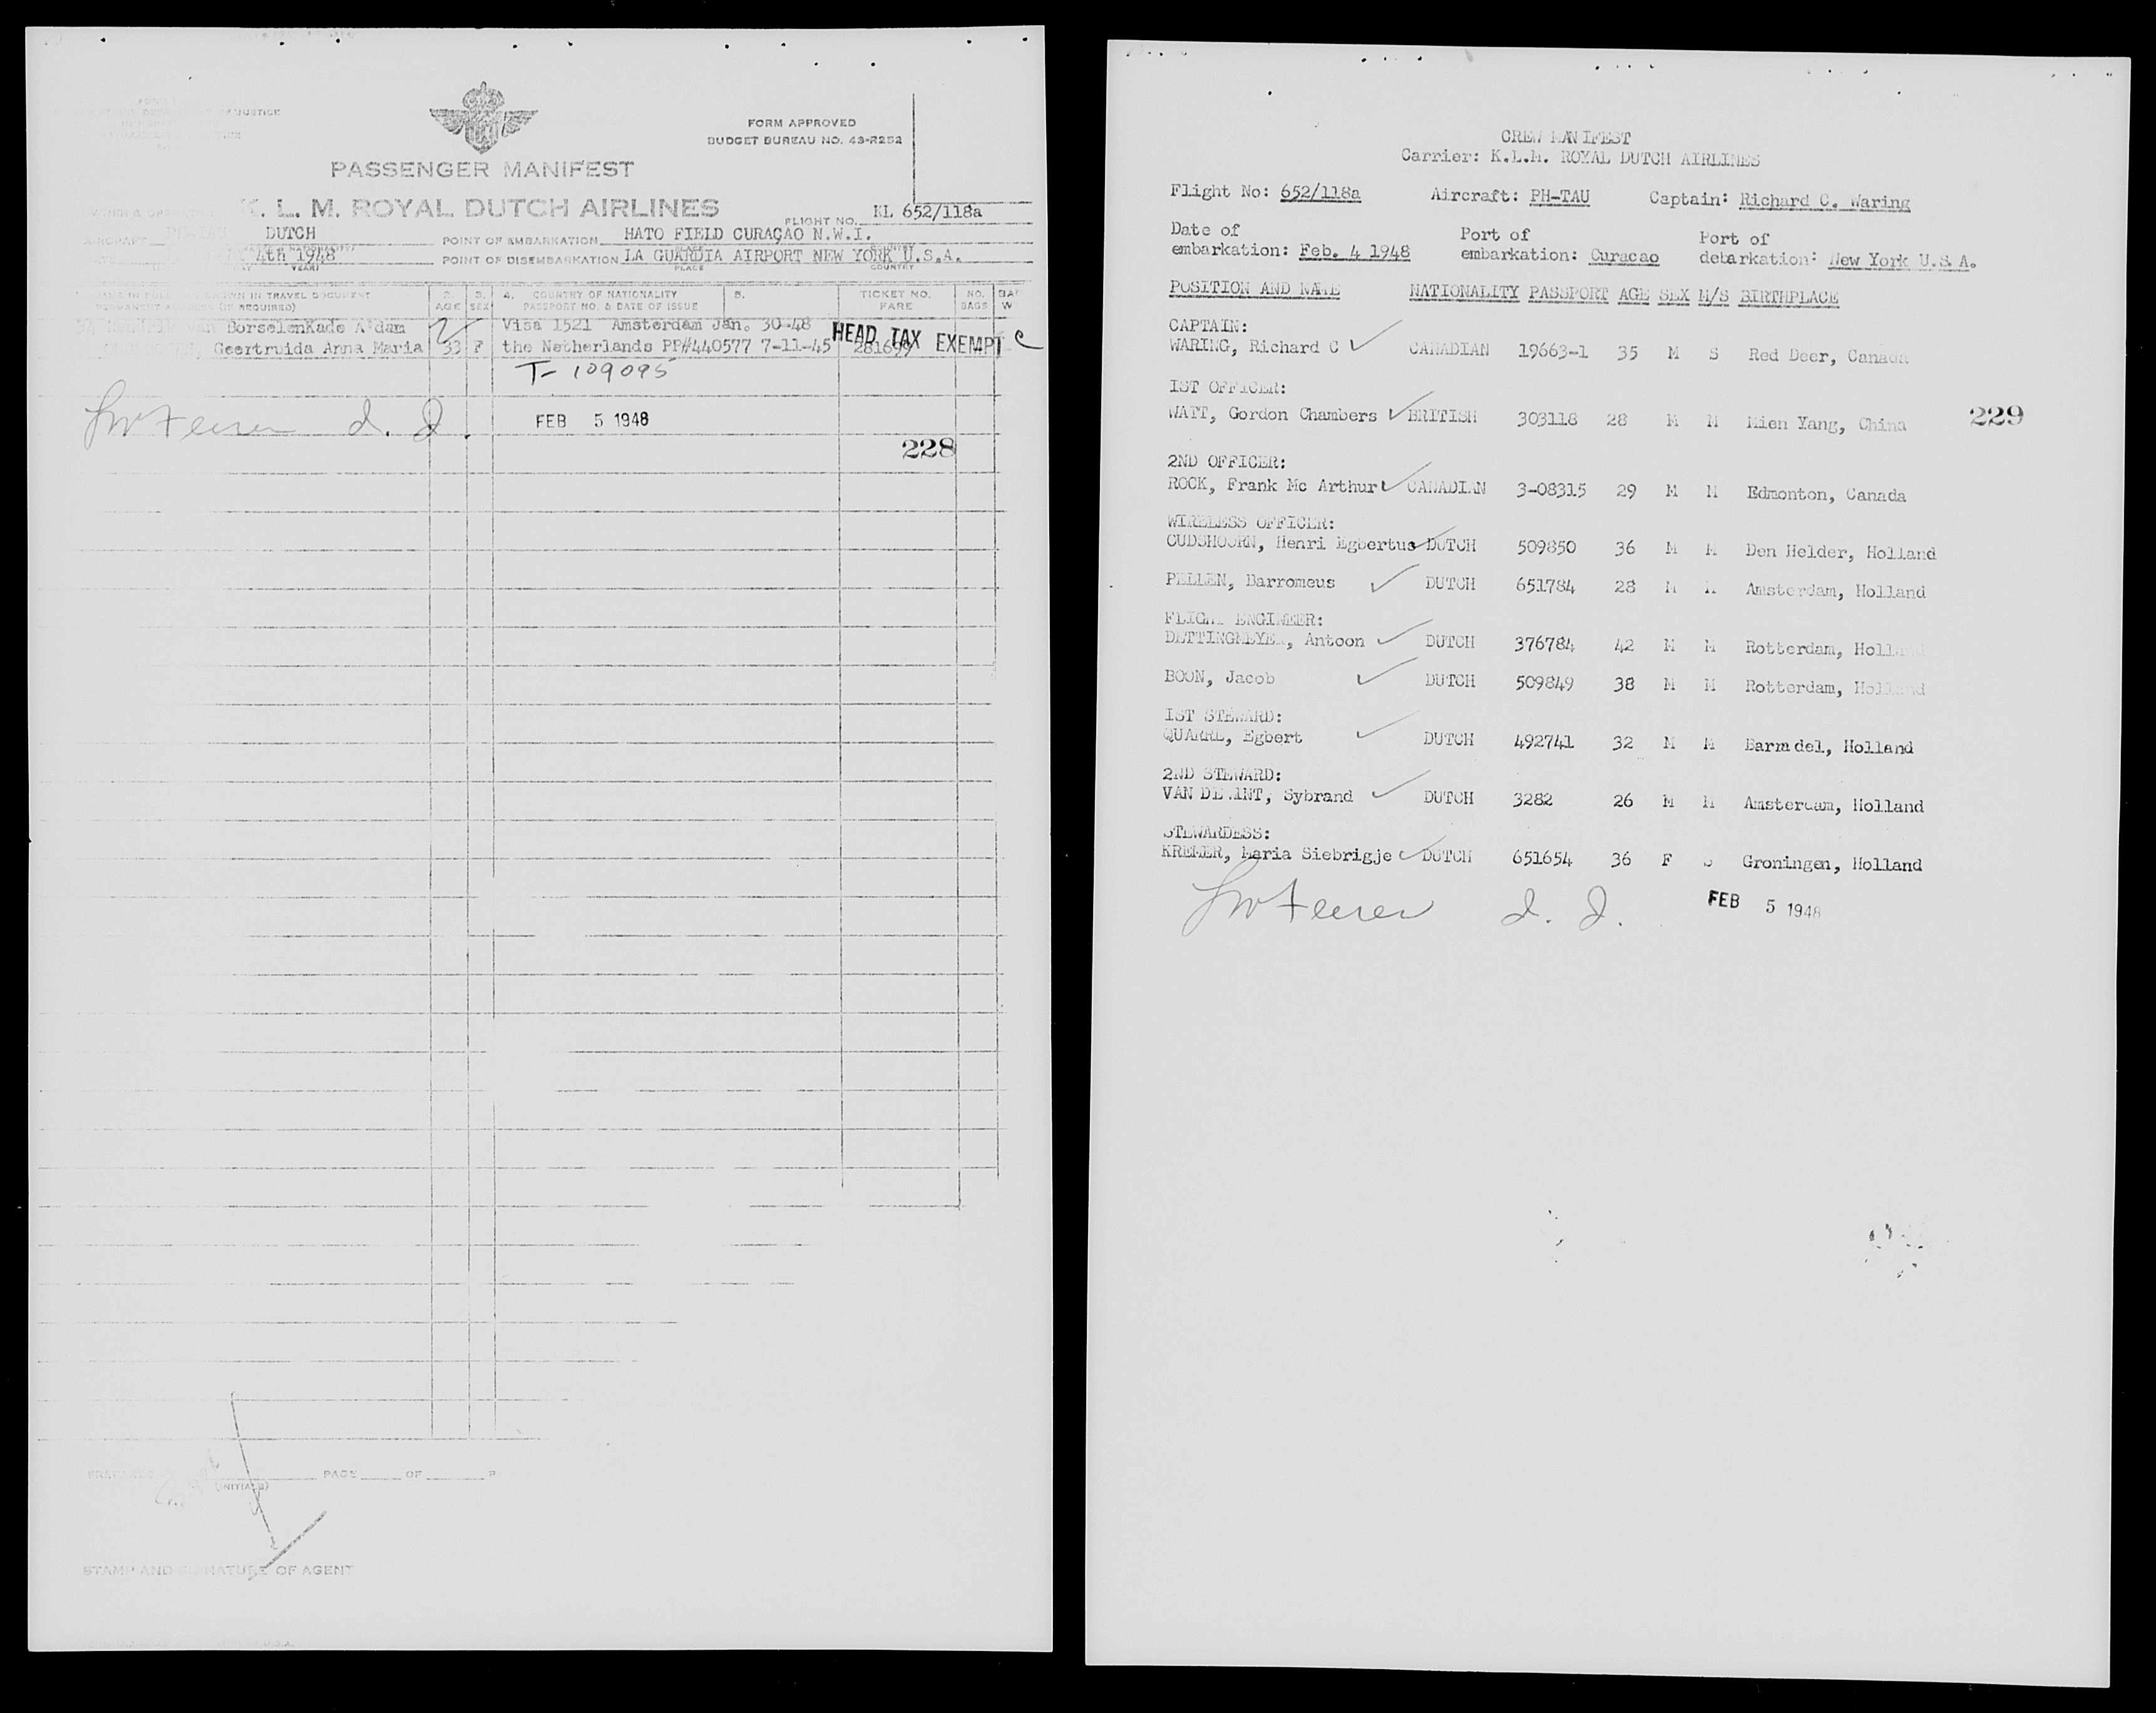 JUSTICE
FORM APPROVED
BUDGET BUREAU NO. 43-R252
PASSENGER MANIFEST
K. L. M. ROYAL DUTCH AIRLINES
FLIGHT NO. KL 652/118a
AIRCRAFT DUTCH
POINT OF EMBARKATION HATO FIELD CURAÇAO N.W.I.
4th 1948
YEAR)
POINT OF DISEMBARKATION LA GUARDIA AIRPORT NEW YORK U.S.A.
PLACE COUNTRY
IN TRAVEL DOCUMENT 2. 3. 4. COUNTRY OF NATIONALITY 5. TICKET NO. NO.
(IF REQUIRED) AGE SEX PASSPORT NO. & DATE OF ISSUE FARE BAGS W
van BorselenKade A'dam Visa 1521 Amsterdam Jan. 30-48
HEAD TAX EXEMPT
Geertruida Anna Maria 33 F the Netherlands PP#440577 7-11-45 281699
T- 109095
FEB 5 1948
228
(INITIALS) PAGE OF
STAMP AND SIGNATURE OF AGENT
CREW MANIFEST
Carrier: K.L.M. ROYAL DUTCH AIRLINES
Flight No: 652/118a Aircraft: PH-TAU Captain: Richard C. Waring
Date of Port of Port of
embarkation: Feb. 4 1948 embarkation: Curacao debarkation: New York U.S.A.
POSITION AND NAME NATIONALITY PASSPORT AGE SEX M/S BIRTHPLACE
CAPTAIN:
WARING, Richard C CANADIAN 19663-1 35 M S Red Deer, Canada
1ST OFFICER:
WATT, Gordon Chambers BRITISH 303118 28 M M Mien Yang, China
229
2ND OFFICER:
ROCK, Frank Mc Arthur CANADIAN 3-08315 29 M M Edmonton, Canada
WIRELESS OFFICER:
OUDSHOORN, Henri Egbertus DUTCH 509850 36 M M Den Helder, Holland
PELLEN, Barromeus DUTCH 651784 28 M M Amsterdam, Holland
FLIGHT ENGINEER:
DETTINGMEYER, Antoon DUTCH 376784 42 M M Rotterdam, Holland
BOON, Jacob DUTCH 509849 38 M M Rotterdam, Holland
1ST STEWARD:
QUARRE, Egbert DUTCH 492741 32 M M Barndel, Holland
2ND STEWARD:
VAN DE Sybrand DUTCH 3282 26 M M Amsterdam, Holland
STEWARDESS:
KREMER, Maria Siebrigje DUTCH 651654 36 F S Groningen, Holland
FEB 5 1948